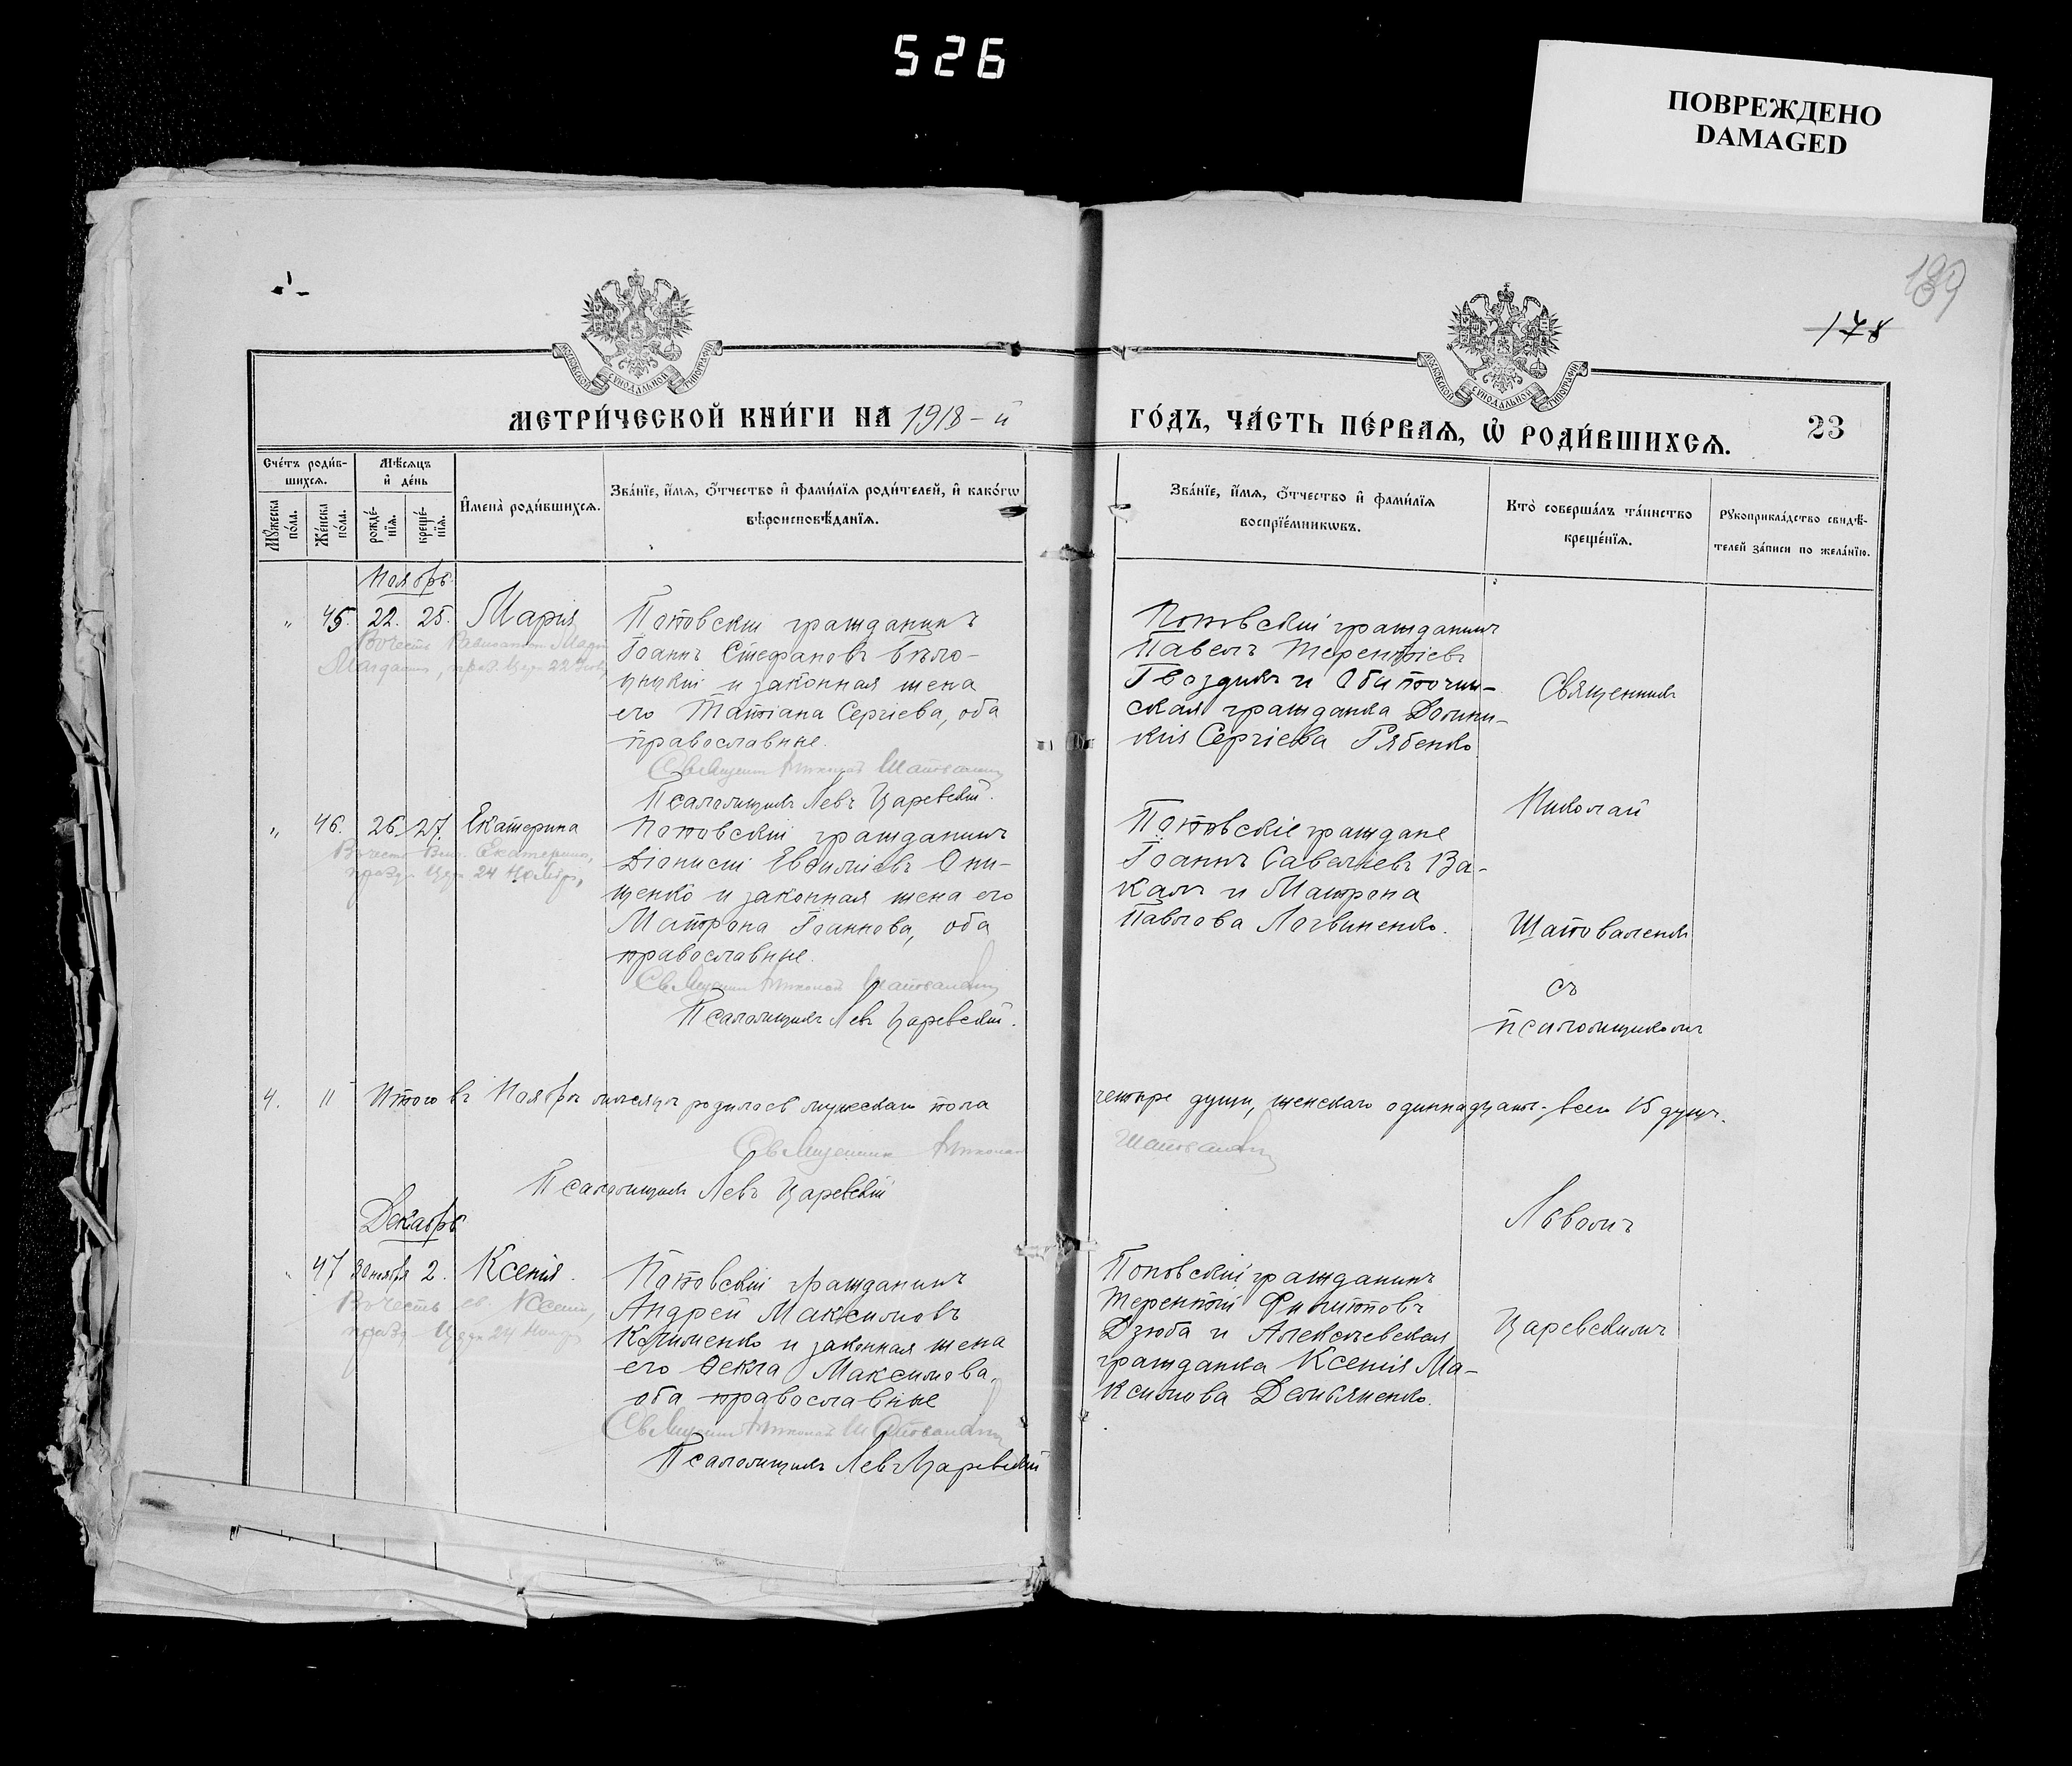 526
ПОВРЕЖДЕНО
DAMAGED
189
178
МОСКОВСКОЙ СѴНОДАЛЬНОЙ ТИПОГРАФІИ
МОСКОВСКОЙ СѴНОДАЛЬНОЙ ТИПОГРАФІИ
МЕТРИ́ЧЕСКОЙ КНИ́ГИ НА 1918-й
ГО́ДЪ, ЧА́СТЬ ПЕ́РВАѦ, Ѽ РОДИ́ВШИХСѦ.
23
Сче́тъ роди́в-
шихсѧ.
Мѣ́сѧцъ
и҆ де́нь
Мꙋ́жеска
по́ла.
Же́нска
по́ла.
рожде́-
нїѧ.
креще́-
нїѧ.
И҆мена̀ роди́вшихсѧ.
Зва́нїе, и҆́мѧ, ѻ҆́тчество и҆ фамі́лїѧ роди́телей, и҆ како́гѡ
вѣроисповѣ́данїѧ.
Зва́нїе, и҆́мѧ, ѻ҆́тчество и҆ фамі́лїѧ
воспрїе́мникѡвъ.
Кто̀ соверша́лъ та́инство
креще́нїѧ.
Рꙋкоприкла́дство свидѣ́-
телей за́писи по жела́нїю.
Ноябрь
" 45. 22. 25. Марія
Поповскій гражданинъ
Іоаннъ Стефановъ Бѣло-
уцкій и законная жена
его Татіана Сергіева, оба
православные.
Священникъ Николай Шаповаленко
Псаломщикъ Левъ Царевскій.
Поповскій гражданинъ
Павелъ Терентіевъ
Гвоздикъ и Обиточин-
ская гражданка Домни-
кія Сергіева Рябенко
Священникъ
" 46. 26. 27. Екатерина
Въ честь Вел. Екатерины,
празд. Церк. 24 Ноября,
Поповскій гражданинъ
Діонисій Евѳиміевъ Они-
щенко и законная жена его
Матрона Іоаннова, оба
православные.
Священникъ Николай Шаповаленко
Псаломщикъ Левъ Царевскій.
Поповскіе граждане
Іоаннъ Савеліевъ За-
калъ и Матрона
Павлова Логвиненко.
Николай
Шаповаленко
съ
псаломщикомъ
4. 11 Итого въ Ноябрѣ мѣсяцѣ родилось мужескаго пола
четыре души, женскаго одиннадцать, всего 15 душъ.
Священникъ Николай
Шаповаленко
Псаломщикъ Левъ Царевскій
Декабрь
" 47 30 ноября 2. Ксенія.
Въ честь св. Ксеніи,
празд. Церк. 24
Поповскій гражданинъ
Андрей Максимовъ
Клименко и законная жена
его Ѳекла Максимова,
оба православные
Священникъ Николай Шаповаленко
Псаломщикъ Левъ Царевскій
Поповскій гражданинъ
Терентій Филипповъ
Дзюба и Алексѣевская
гражданка Ксенія Ма-
ксимова Демьяненко.
Львомъ
Царевскимъ